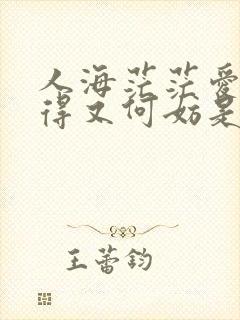 人海茫茫爱
得又何妨是
王蕾钧